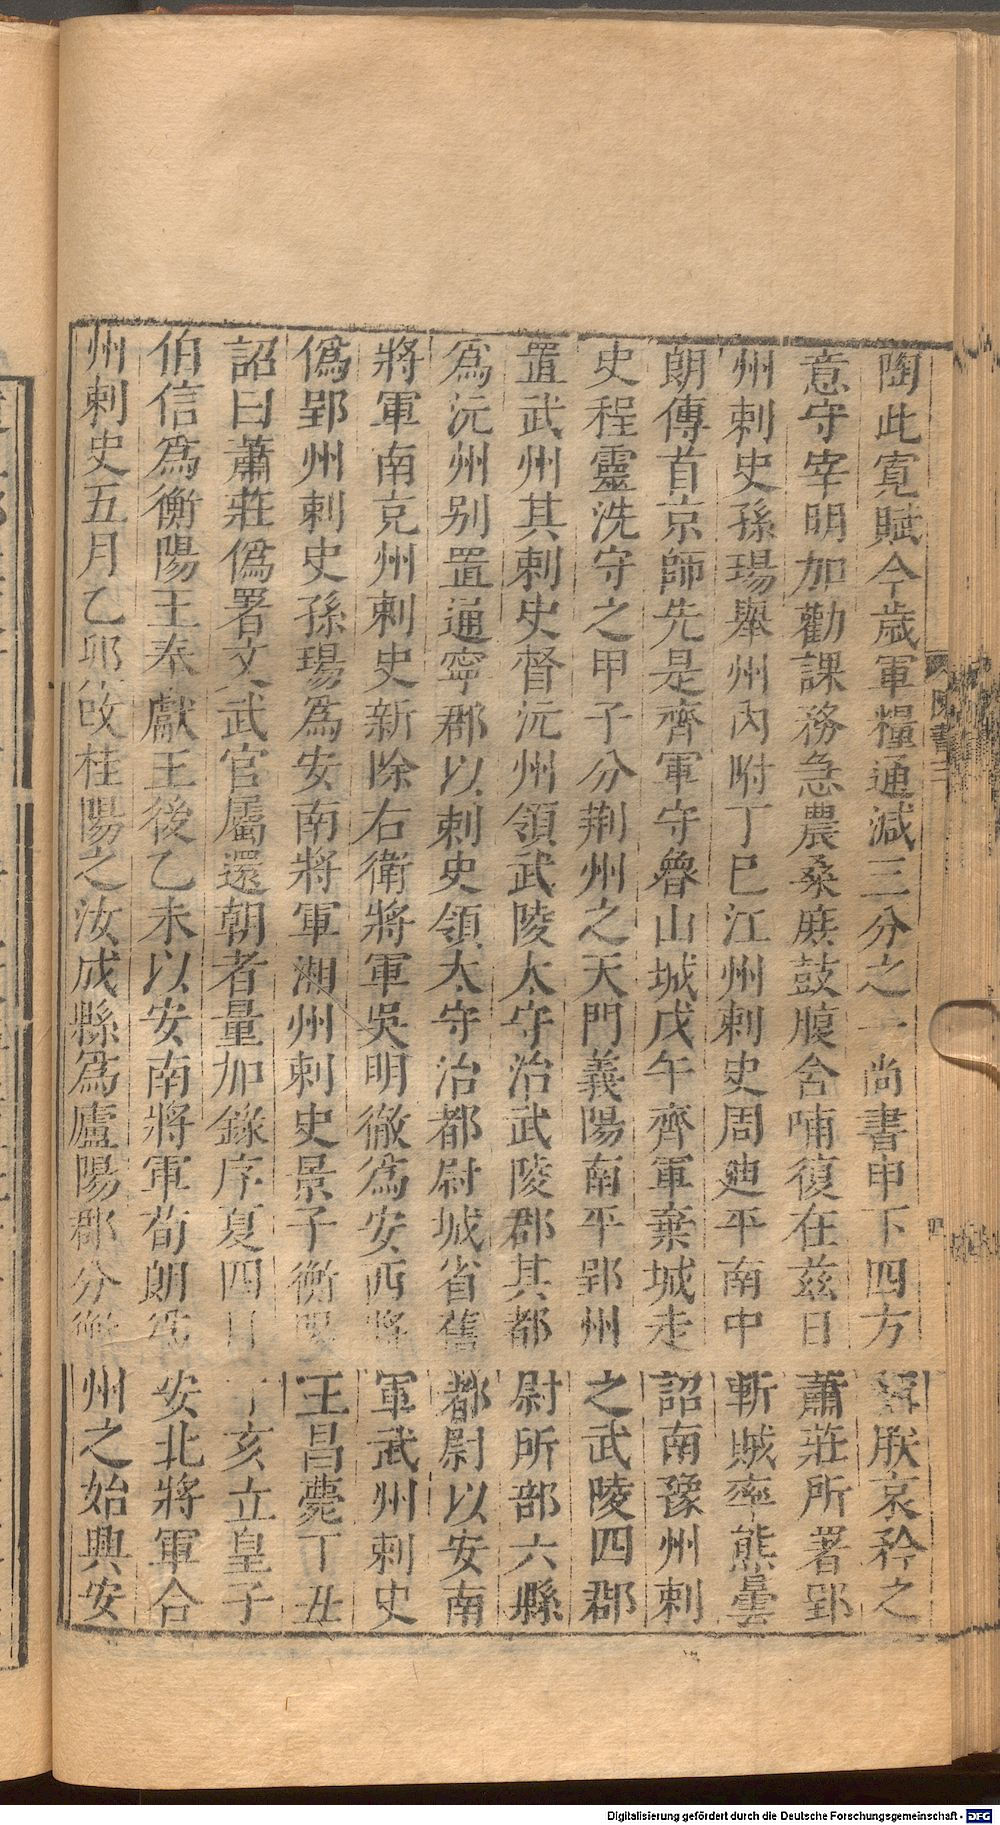 陶此寬賦今歲軍糧通減三分之一尚書申下四方稱朕哀矜之
意守宰明加勸課務急農桑庶鼓腹含哺復在茲日蕭莊所署郢
州刺史孫瑒舉州內附丁巳江州刺史周迪平南中斬賊率熊曇
朗傳首京師先是齊軍守魯山城戊午齊軍棄城走詔南豫州刺
史程靈洗守之甲子分荆州之天門義陽南平郢州之武陵四郡
置武州其刺史督沅州領武陵太守治武陵郡其都尉所部六縣
爲沅州别置通寧郡以刺史領太守治都尉城省舊都尉以安南
將軍南兗州刺史新除右衛將軍吳明徹爲安西將軍武州刺史
僞郢州刺史孫瑒爲安南將軍湘州刺史景子衡陽王昌薨丁丑
詔曰蕭莊僞署文武官屬還朝者量加錄序夏四月丁亥立皇子
伯信爲衡陽王奉獻王後乙未以安南將軍荀朗爲安北將軍合
州刺史五月乙卯改桂陽之汝成縣爲廬陽郡分衡州之始興安
陳書三
四
Digitalisierung gefördert durch die Deutsche Forschungsgemeinschaft - DFG